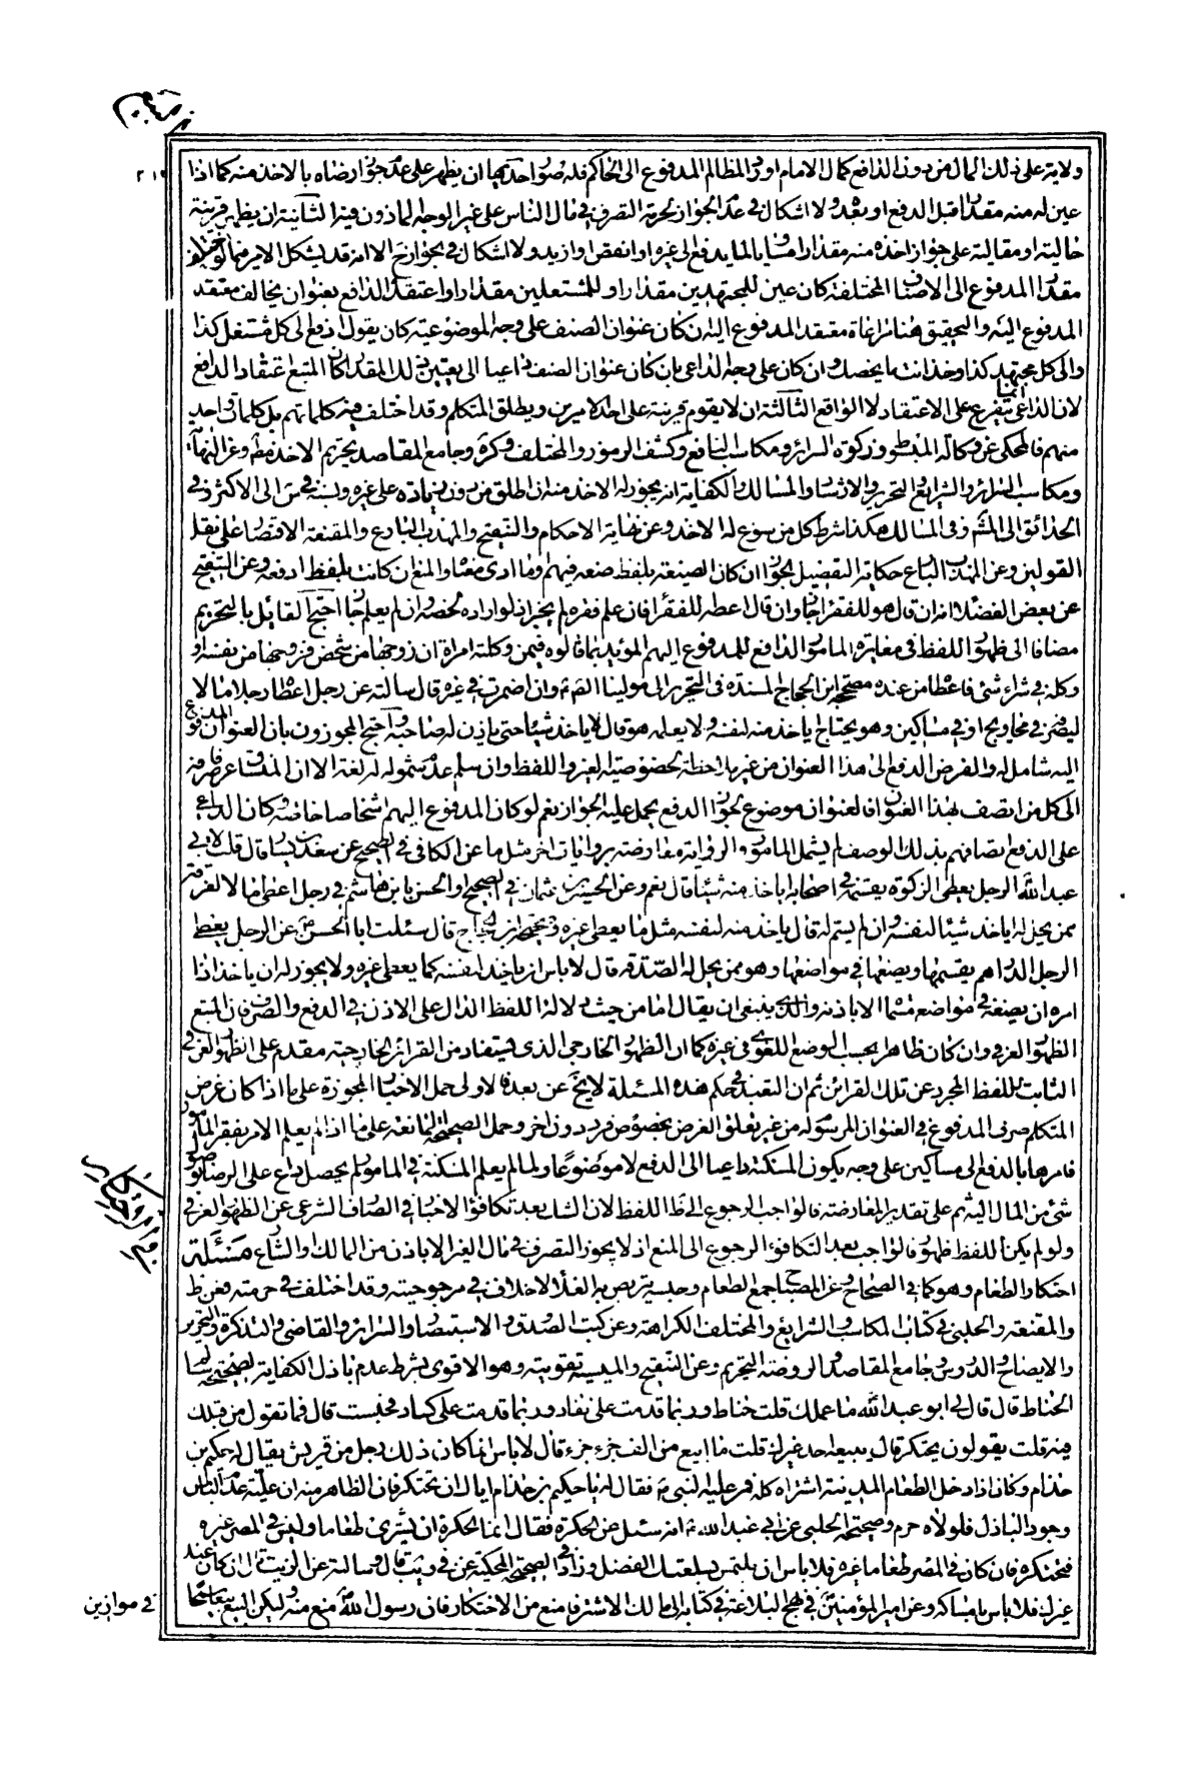 ولاية على ذلك المال من دون الدافع كمال الامام اورد المظالم المدفوع الى الحاكم فله صور احديها ان يظهر على عدم جواز رضاه بالاخذ منه كما اذا
عين له منه مقدارا قبل الدفع او بعده ولا اشكال فى عدم الجواز لحرمة التصرف فى مال الناس على غير الوجه الماذون فيه الثانية ان يظهر قرينة
حالية او مقالية على جواز اخذه منه مقدارا مساويا لما يدفع الى غيره او انقص او ازيد ولا اشكال فى الجواز ح الا انه قد يشكل الامر فيما لو اختلف
مقدار المدفوع الى الاصناف المختلفة كان عين للمجتهدين مقدارا وللمشتغلين مقدارا واعتقد الدافع بعنوان يخالف معتقد
المدفوع اليه والتحقيق هنا مراعاة معتقد المدفوع اليه ان كان عنوان الصنف على وجه الموضوعية كان يقول ادفع الى كل مشتغل كذا
والى كل مجتهد كذا وخذ انت ما يخصك وان كان على وجه الداعى بان كان عنوان الصنف داعيا الى تعيين ذلك المقدار كان المتبع اعتقاد الدافع
لان الداعى انما يتفرع على الاعتقاد لا الواقع الثالثة ان لا يقوم قرينة على احد الامرين ويطلق المتكلم وقد اختلف فيه كلماتهم بل كلمات واحد
منهم فالمحكى عن وكالة المبسوط وزكوة السرائر ومكاسب النافع وكشف الرموز والمختلف والتذكرة وجامع المقاصد تحريم الاخذ مطلقا وعن النهاية
ومكاسب السرائر والشرايع والتحرير والارشاد والمسالك والكفاية انه يجوز له الاخذ منه ان اطلق من دون زيادة على غيره ونسبه فى س الى الاكثر وفى
الحدائق الى المشهور وفى المسالك هكذا شرط كل من سوغ له الاخذ وعن نهاية الاحكام والتنقيح والمهذب البارع والمقتصر الاقتصار على نقل
القولين وعن المهذب البارع حكاية التفصيل بالجواز ان كان الصيغة بلفظ ضعه فيهم وما ادى معناه والمنع ان كانت بلفظ ادفعه وعن التنقيح
عن بعض الفضلاء انه ان قال هو للفقراء جاز وان قال اعطه للفقراء فان علم فقره لم يجز اذ لو اراده لخصه وان لم يعلم جاز احتج القائل بالتحريم
مضافا الى ظهور اللفظ فى مغايرة المامور بالدفع للمدفوع اليهم المؤيد بما قالوه فيمن وكلته امراة ان يزوجها من شخص فزوجها من نفسه او
وكله فى شراء شئ فاعطاه من عنده مصححة ابن الحجاج المسندة فى التحرير الى مولينا الصادق وان اضمرت فى غيره قال سالته عن رجل اعطاه رجل مالا
ليقسمه فى محاويج او فى مساكين وهو محتاج اياخذ منه لنفسه ولا يعلمه هو قال لا ياخذ شيئا حتى ياذن له صاحبه واحتج المجوزون بان العنوان المدفوع
اليه شامل له والفرض الدفع الى هذا العنوان من غير ملاحظة لخصوصية الغير واللفظ وان سلم عدم شموله له لغة الا ان المنساق عرفا صرفه
الى كل من اتصف بهذا العنوان فالعنوان موضوع لجواز الدفع يحمل عليه الجواز نعم لو كان المدفوع اليهم اشخاصا خاصة وكان الداعى
على الدفع اتصافهم بذلك الوصف لم يشمل المامور والرواية معارضة بروايات اخر مثل ما عن الكافى فى الصحيح عن سعيد بن يسار قال قلت لابى
عبد الله الرجل يعطى الزكوة يقسمها فى اصحابه اياخذ منه شيئا قال نعم وعن الحسين بن عثمان فى الصحيح او الحسن بابن هاشم فى رجل اعطى مالا يفرقه
ممن يحل له اياخذ شيئا لنفسه وان لم يسم له قال ياخذ منه لنفسه مثل ما يعطى غيره وصحيحة ابن الحجاج قال سئلت ابا الحسن عن الرجل يعطى
الرجل الدراهم يقسمها ويضعها فى مواضعها وهو ممن يحل له الصدقة قال لا باس ان ياخذ لنفسه كما يعطى غيره ولا يجوز له ان ياخذ اذا
امره ان يضعه فى مواضع مسماة الا باذنه والذى ينبغى ان يقال اما من حيث دلالة اللفظ الدال على الاذن فى الدفع والصرف فان المتبع
الظهور العرفى وان كان ظاهرا بحسب الوضع اللغوى فى غيره كما ان الظهور الخارجى الذى يستفاد من القرائن الخارجية مقدم على الظهور العرفى
الثابت للفظ المجرد عن تلك القرائن ثم ان التعبد فى حكم هذه المسئلة لا يخ عن بعد فالاولى حمل الاخبار المجوزة على ما اذا كان غرض
المتكلم صرف المدفوع فى العنوان المرسوم له من غير تعلق الغرض بخصوص فرد دون اخر وحمل الصحيحة المانعة على ما اذا لم يعلم الامر بفقر المامور
فامره بالدفع الى مساكين على وجه يكون المسكنة داعيا الى الدفع لا موضوعا ولما لم يعلم المسكنة فى المامور لم يحصل داع على الرضا بوصول
شئ من المال اليه ثم على تقدير المعارضة فالواجب الرجوع الى ظاهر اللفظ لان الشك بعد تكافؤ الاخبار فى الصارف الشرعى عن الظهور العرفى
ولو لم يكن للفظ ظهور فالواجب بعد التكافؤ الرجوع الى المنع اذ لا يجوز التصرف فى مال الغير الا باذن من المالك والشارع مسئلة
احتكار الطعام وهو كما فى الصحاح وعن المصباح جمع الطعام وحبسه يتربص به الغلاء لا خلاف فى مرجوحيته وقد اختلف فى حرمته فعن ط
والمقنعة والحلبى فى كتاب المكاسب والشرايع والمختلف الكراهة وعن كتب الصدوق والاستبصار والسرائر والقاضى والتذكرة والتحرير
والايضاح والدروس وجامع المقاصد والروضة التحريم وعن التنقيح والميسية تقويته وهو الاقوى بشرط عدم باذل الكفاية لصحيحة سالم
الحناط قال قال لى ابو عبد الله ما عملك قلت حناط وربما قدمت على نفاد وربما قدمت على كساد فحبست قال فما تقول من قبلك
فيه قلت يقولون يحتكر قال يبيعه احد غيرك قلت ما ابيع من الف جزء جزء قال لا باس انما كان ذلك رجل من قريش يقال له حكيم بن
حزام وكان اذا دخل الطعام المدينة اشتراه كله فمر عليه النبى ص فقال له يا حكيم بن حزام اياك ان تحتكر فان الظاهر منه ان علة عدم الباس
وجود الباذل فلولاه حرم وصحيحة الحلبى عن ابى عبد الله ع انه سئل عن الحكرة فقال انما الحكرة ان يشترى طعاما وليس فى المصر غيره
فتحتكره فان كان فى المصر طعاما غيره فلا باس ان يلتمس بسلعتك الفضل وزاد فى الصحيحة المحكية عن فى ويب قال وسالته عن الزيت قال ان كان عند
غيرك فلا باس بامساكه وعن امير المؤمنين فى نهج البلاغة فى كتابه الى مالك الاشتر فامنع من الاحتكار فان رسول الله ص منع منه وليكن البيع بيعا سمحا
فى موازين